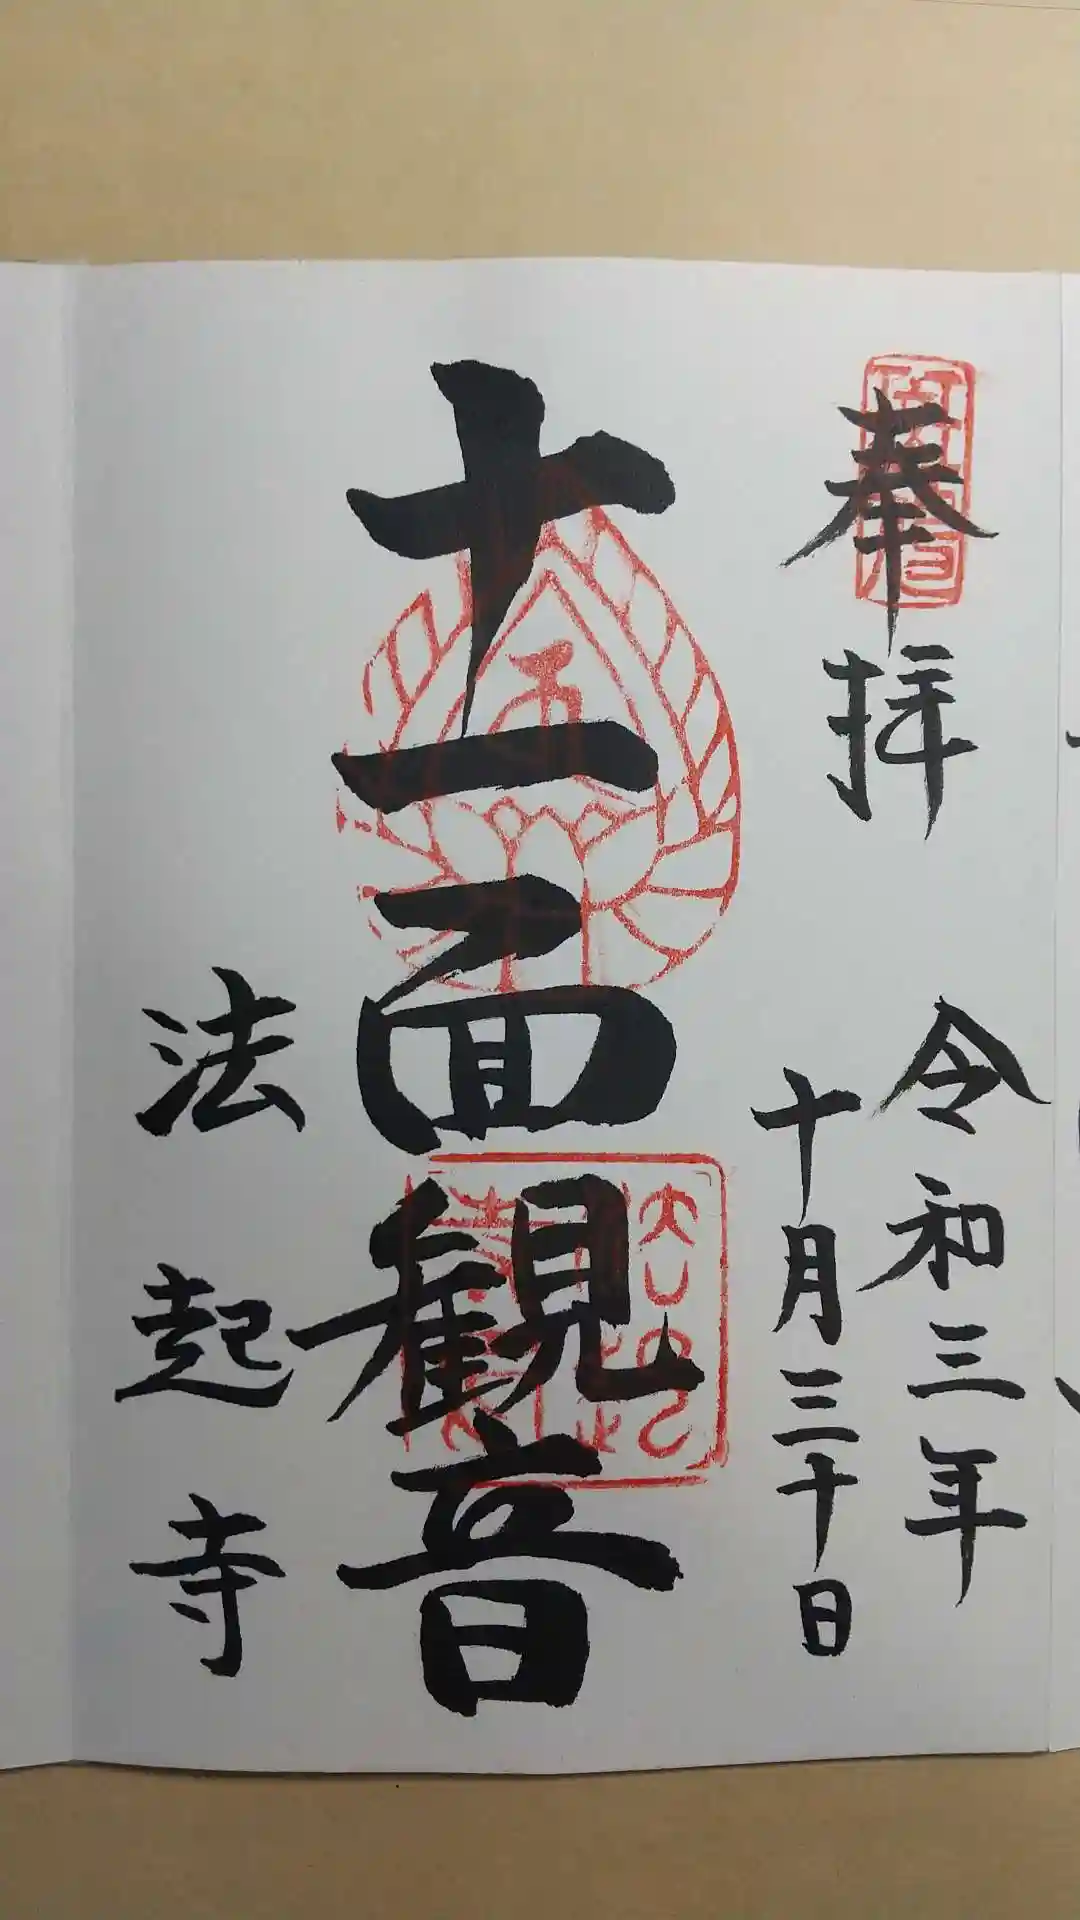 奉拝
令和三年
十月三十日
十一面観音
法起寺